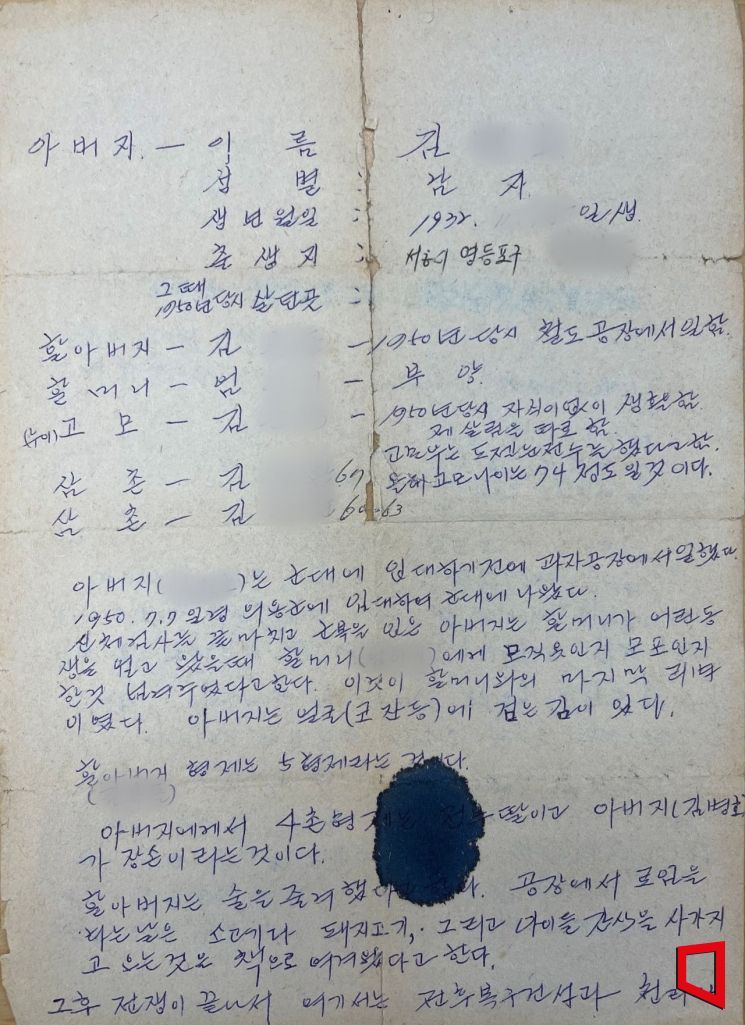 아버지. — 이 름 김
성 별 : 남 자.
생년월일 : 1932. 일생.
출생지 : 서울시 영등포구
그때 1950년당시 살던곳 :
할아버지 — 김 — 1950년 당시 철도공장에서 일함.
할머니 — 범 — 부 양.
(누이)고 모 — 김 — 1950년당시 자취이없이 생활을함.
제 살림을 따로 함.
고모부는 도전 운전수를 했다고함.
삼 촌 — 김 67 올해 고모나이는 74 정도 일것이다.
삼 촌 — 김 60-63
아버지( )는 군대에 입대하기전에 과자공장에서 일했다.
1950. 7.7 일경 의용군에 입대하여 군대에 나왔다.
신체검사를 끝마치고 군복을 입은 아버지는 할머니가 어린동
생을 업고 왔을때 할머니( )에게 모직옷인지 모포인지
한것 넘겨주었다고한다. 이것이 할머니와의 마지막 리별
이였다. 아버지는 얼굴(코잔등)에 검은 김이 있다.
할아버지 형제는 5형제라는 것이다.
( )
아버지에게서 4촌형제는 전부 딸이고 아버지(김병호)
가 장손이라는것이다.
할아버지는 술을 즐겨했다고 한다. 공장에서 로임을
타는날은 소고기나 돼지고기, 그리고 아이들 간식을 사가지
고 오는것은 책으로 여겨왔다고 한다.
그후 전쟁이 끝나서 여기서는 전후복구건설과 천리